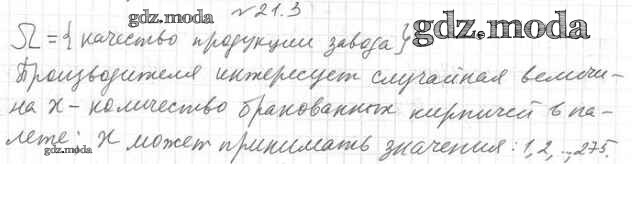 №21.3
gdz.moda
Ω={качество продукции завода}
gdz.moda
Производителя интересует случайная величи-
на х - количество бракованных кирпичей в па-
лете: х может принимать значения: 1, 2, .., 275.
gdz.moda